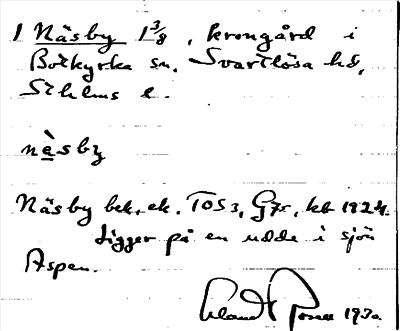 1 Näsby 1 3/8, krongård i
Botkyrka sn. Svartlösa hd,
Sthlms l.
nàsby
Näsby bek. ek. TOS3, G75, kb 1824.
Ligger på en udde i sjön
Aspen.
1930.